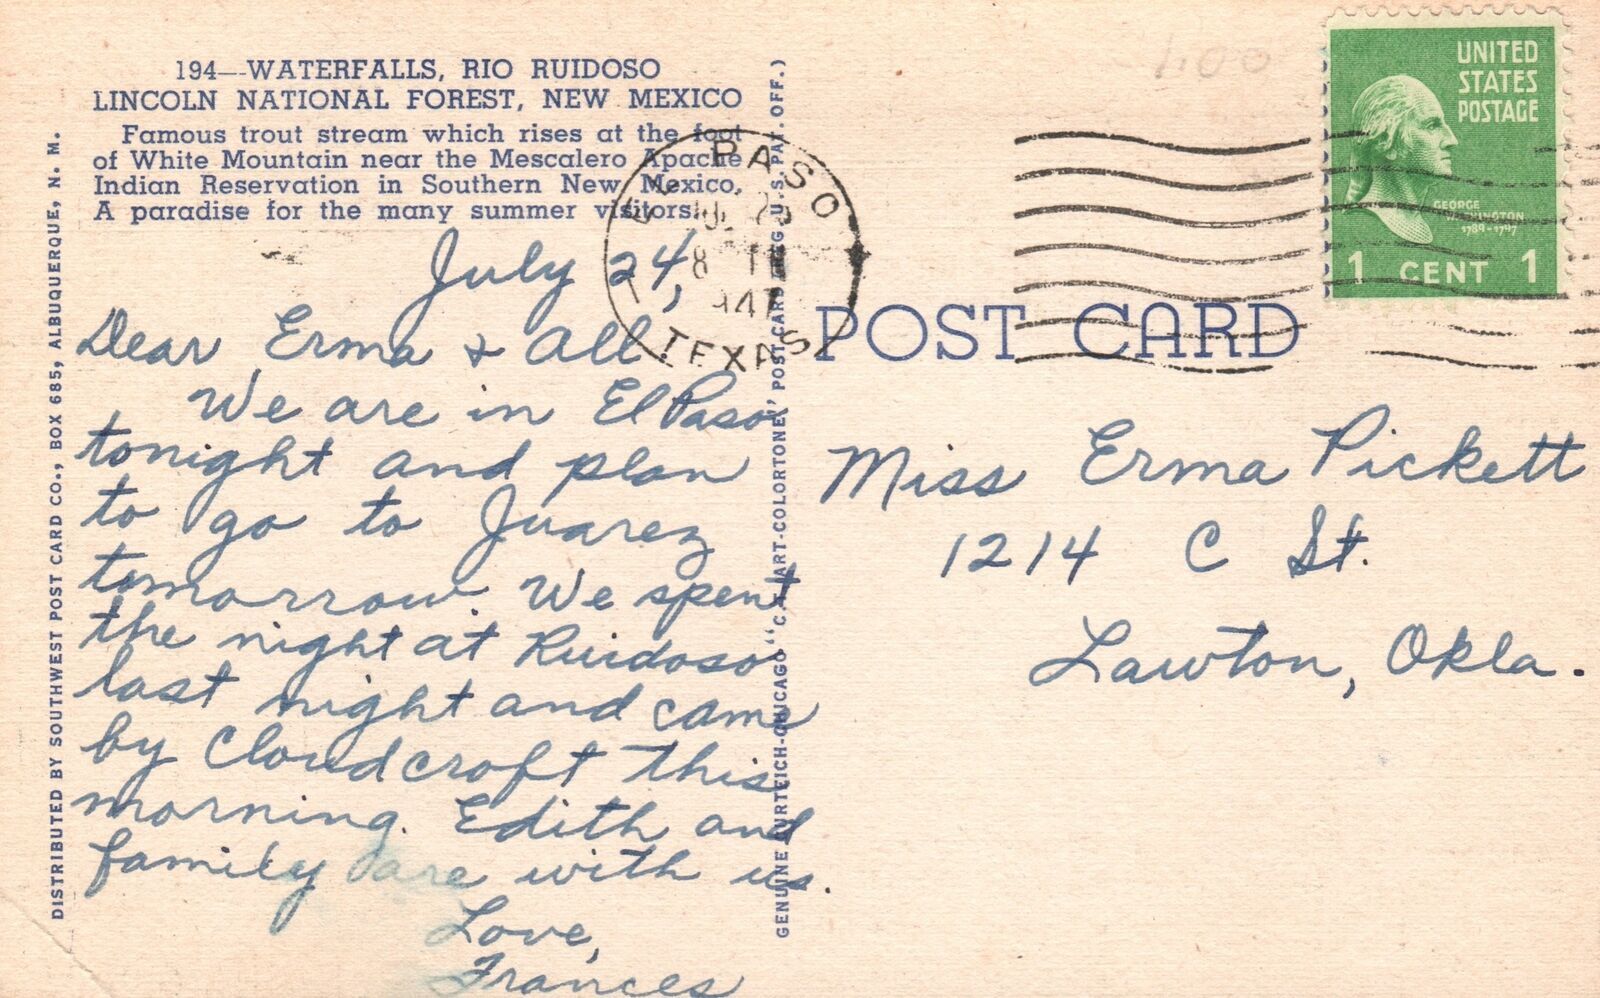 194—WATERFALLS, RIO RUIDOSO
LINCOLN NATIONAL FOREST, NEW MEXICO
Famous trout stream which rises at the foot
of White Mountain near the Mescalero Apache
Indian Reservation in Southern New Mexico,
A paradise for the many summer visitors.
July 24,
Dear Erma & All:
We are in El Paso
tonight and plan
to go to Juarez
tomorrow. We spent
the night at Ruidoso
last night and came
by Cloudcroft this
morning. Edith and
family are with us.
Love,
Frances
DISTRIBUTED BY SOUTHWEST POST CARD CO., BOX 685, ALBUQUERQUE, N. M.
GENUINE CURTEICH-CHICAGO "C. T. ART-COLORTONE" POST CARD (REG. U. S. PAT. OFF.)
EL PASO
8
1947
TEXAS
POST CARD
UNITED
STATES
POSTAGE
GEORGE
WASHINGTON
1789-1797
1 CENT 1
Miss Erma Pickett
1214 C St.
Lawton, Okla.